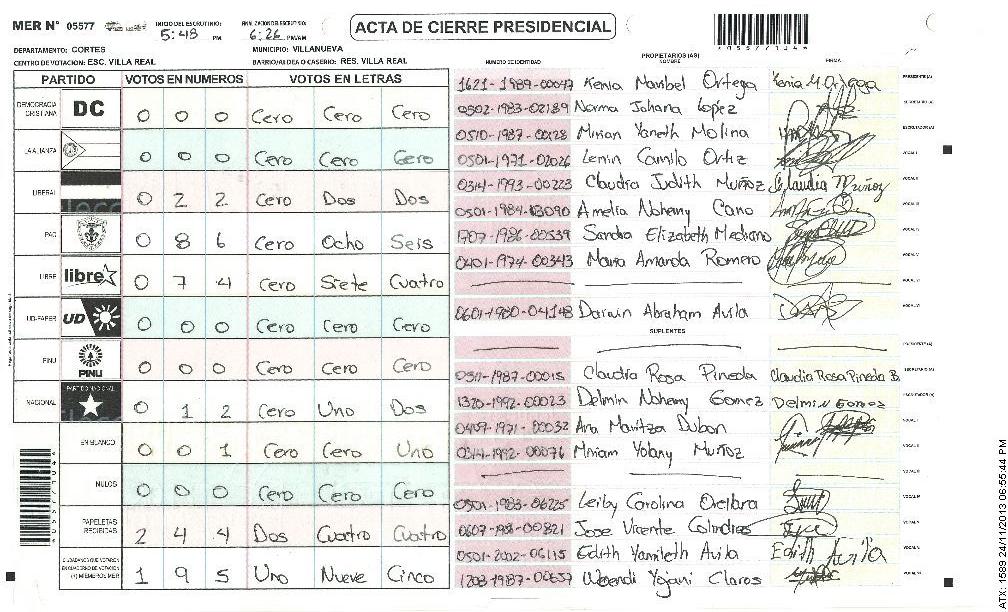 MER N° 05577 INICIO DEL ESCRUTINIO: 5:48 PM FINALIZACION DEL ESCRUTINIO: 6:26 PM/AM
ACTA DE CIERRE PRESIDENCIAL
DEPARTAMENTO: CORTES MUNICIPIO: VILLANUEVA
CENTRO DE VOTACION: ESC. VILLA REAL BARRIO/ALDEA O CASERIO: RES. VILLA REAL
PARTIDO VOTOS EN NUMEROS VOTOS EN LETRAS
DEMOCRACIA CRISTIANA DC 0 0 0 Cero Cero Cero
LA ALIANZA 0 0 0 Cero Cero Cero
LIBERAL 0 2 2 Cero Dos Dos
PAC 0 8 6 Cero Ocho Seis
LIBRE libre 0 7 4 Cero Siete Cuatro
UD-FAPER UD 0 0 0 Cero Cero Cero
PINU PINU 0 0 0 Cero Cero Cero
NACIONAL PARTIDO NACIONAL 0 1 2 Cero Uno Dos
EN BLANCO 0 0 1 Cero Cero Uno
NULOS 0 0 0 Cero Cero Cero
PAPELETAS RECIBIDAS 2 4 4 Dos Cuatro Cuatro
CIUDADANOS QUE VOTARON EN CUADERNO DE VOTACION (+) MIEMBROS MER 1 9 5 Uno Nueve Cinco
NUMERO DE IDENTIDAD PROPIETARIOS (AS) NOMBRE FIRMA
1621-1989-00047 Kenia Maribel Ortega Kenia M. Ortega PRESIDENTE (A)
0502-1983-02189 Norma Johana Lopez SECRETARIO (A)
0510-1987-00128 Mirian Yaneth Molina ESCRUTADOR (A)
0501-1971-02026 Lenin Camilo Ortiz VOCAL I
0314-1993-00223 Claudia Judith Muñoz Claudia Muñoz VOCAL II
0501-1984-13090 Amelia Nohemy Cano VOCAL III
1707-1986-00539 Sandra Elizabeth Medrano VOCAL IV
0401-1974-00343 Maria Amanda Romero VOCAL V
0601-1980-04148 Darwin Abraham Avila
SUPLENTES
PRESIDENTE (A)
0311-1987-00015 Claudia Rosa Pineda Claudia Rosa Pineda B. SECRETARIO (A)
1320-1992-00023 Delmin Nohemy Gomez Delmin Gomez ESCRUTADOR (A)
0409-1971-00032 Ana Maritza Dubon
0314-1992-00076 Miriam Yolany Muñoz
0501-1983-06225 Leiby Carolina Orellana
Jose Vicente Calindres
0501-2002-06115 Edith Yamileth Avila Edith Avila
1208-1987-00637 Wendi Yojani Claros
ATX: 1589 24/11/2013 06:55:44 PM